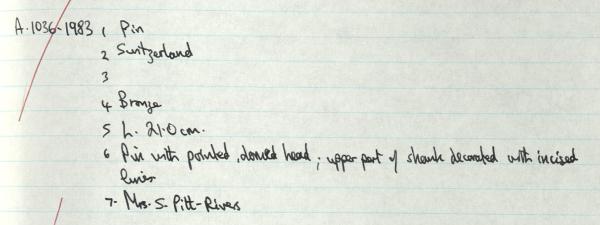 A.1036-1983 1 Pin
2 Switzerland
3
4 Bronze
5 L. 21.0 cm.
6 Pin with pointed, domed head; upper part of shank decorated with incised
lines
7. Mrs. S. Pitt-Rivers